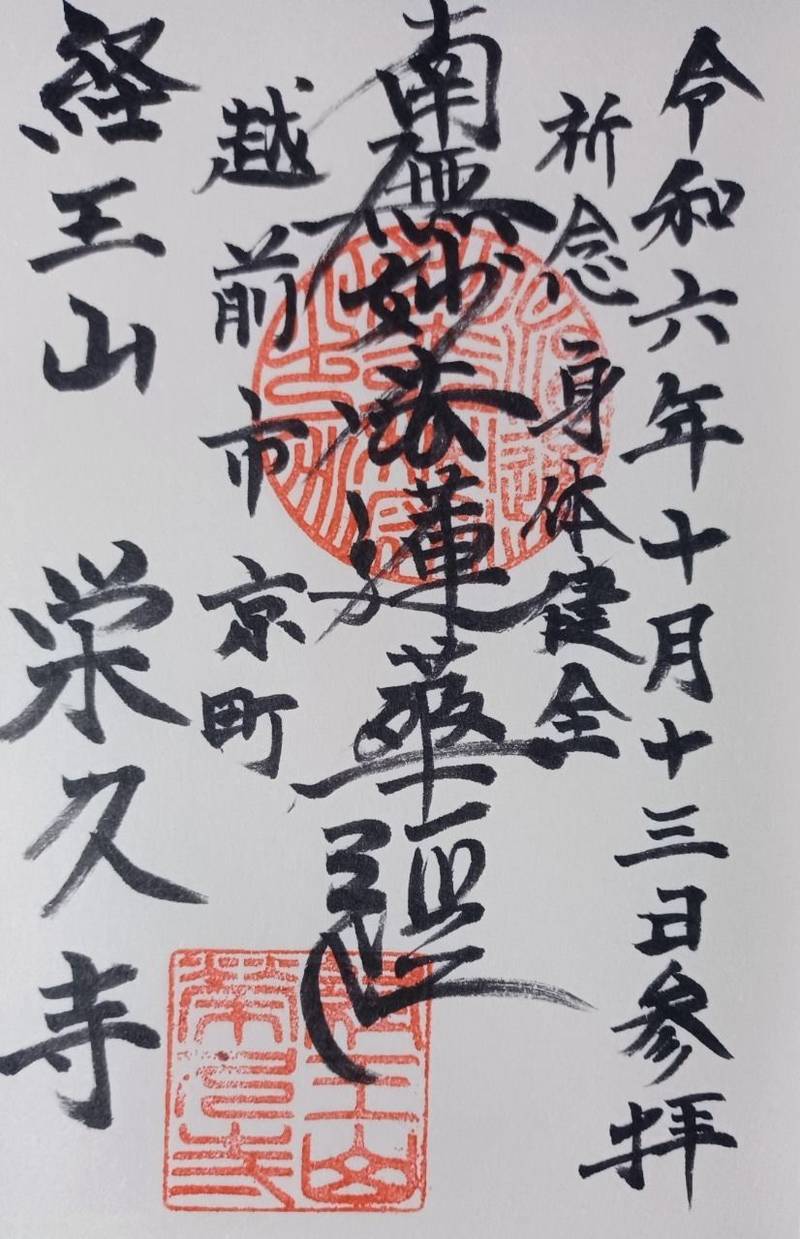 令和六年十月十三日参拝
祈念 身体健全
南無妙法蓮華経
越前市京町
経王山 栄久寺
経王山
栄久寺